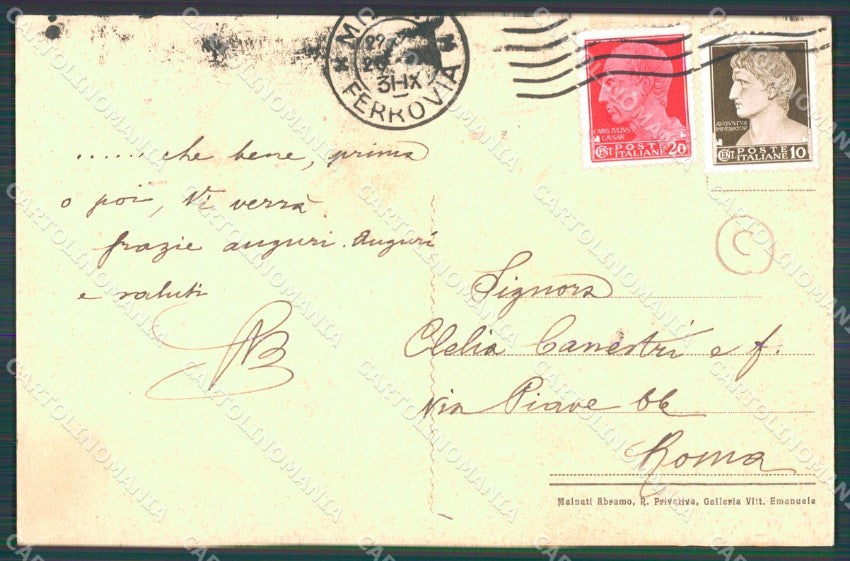 FERROVIA
31-IX
CAIVS IVLIVS
CAESAR
CENT. POSTE ITALIANE 20
AVGVSTVS
IMPERATOR
CENT. POSTE ITALIANE 10
...... che bene, prima
o poi, Vi verrà
grazie auguri. Auguri
e saluti
C
Signora
Clelia Canestri e f.
Via Piave 66
Roma
Mainati Abramo, R. Privativa, Galleria Vitt. Emanuele
CARTOLINOMANIA